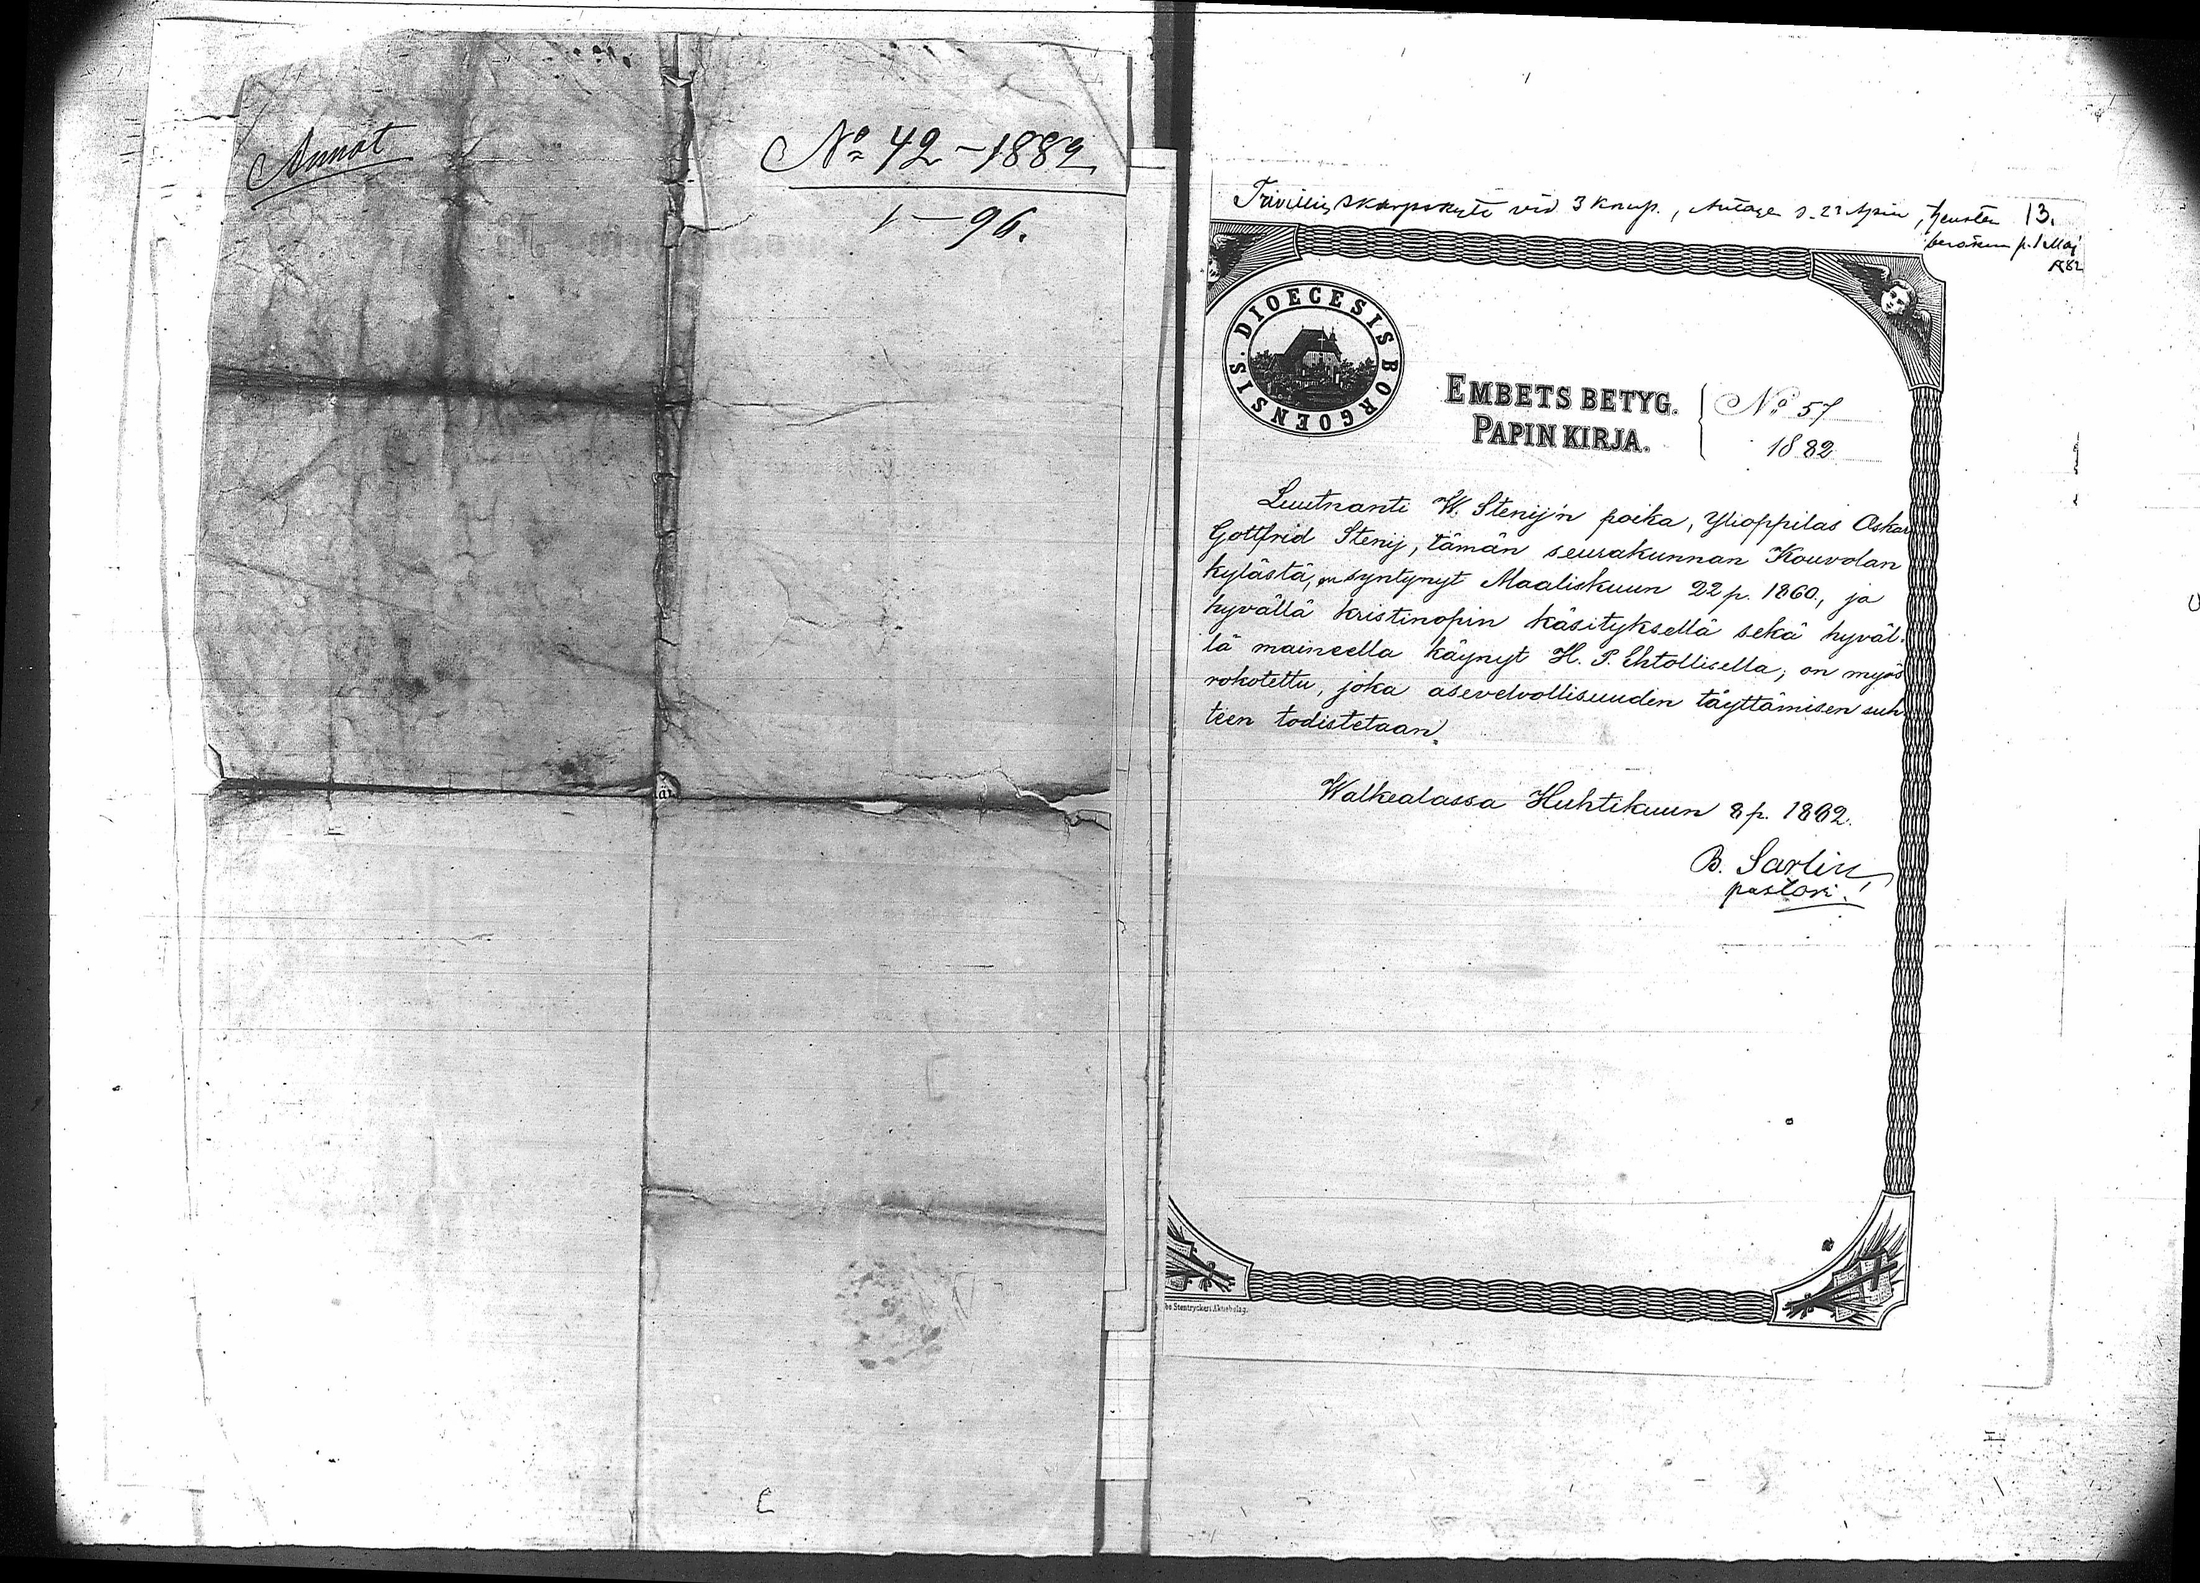 Annot
No 42-1882
1-96.
Frivillig skarpskytt vid 3 komp., Antagen d. 22 April, tjensten 13.
beräknas fr. 1 Maj
1882
DIOECESIS BORGOENSIS.
EMBETS BETYG.
PAPIN KIRJA.
No 57
1882
Luutnanti W. Stenij'n poika, Ylioppilas Oskar
Gottfrid Stenij, tämän seurakunnan Kouvolan
kylästä, on syntynyt Maaliskuun 22 p. 1860, ja
hyvällä kristinopin käsityksellä sekä hyväl-
lä maineella käynyt H. P. Ehtollisella; on myös
rokotettu, joka asevelvollisuuden täyttämisen suh-
teen todistetaan.
Walkealassa Huhtikuun 8 p. 1882.
B. Sarlin,
pastori.
bo Stentryckeri Aktiebolag.